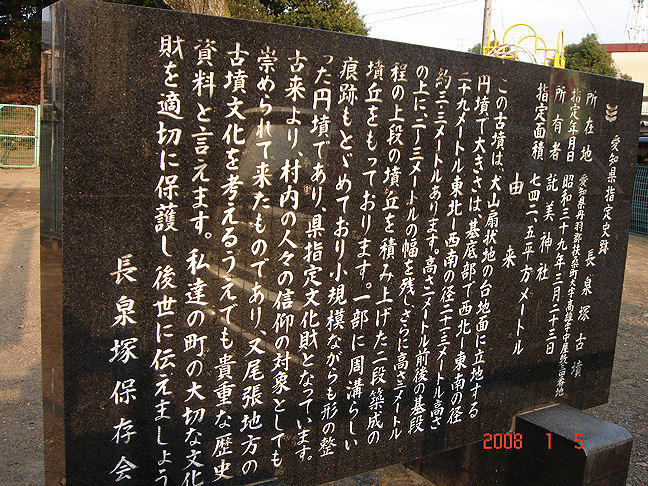 愛知県指定史跡　長泉塚古墳
所在地　愛知県丹羽郡扶桑町大字高雄字中屋敷三四番地
指定年月日　昭和三十九年三月二十三日
所有者　託美神社
指定面積　七四二、五平方メートル
由来
この古墳は、犬山扇状地の台地面に立地する
円墳で大きさは、基底部で西北ー東南の径
二十九メートル東北ー西南の径二十三メートル高さ
約三・三メートルあります。高さ二メートル前後の基段
の上に、二ー三メートルの幅を残しさらに高さ三メートル
程の上段の墳丘を積み上げた二段築成の
墳丘をもっております。一部に周溝らしい
痕跡もとゞめており小規模ながらも形の整
った円墳であり、県指定文化財となっています。
古来より、村内の人々の信仰の対象としても
崇められて来たものであり、又尾張地方の
古墳文化を考えるうえでも貴重な歴史
資料と言えます。私達の町の大切な文化
財を適切に保護し後世に伝えましょう
長泉塚保存会
2008 1 5